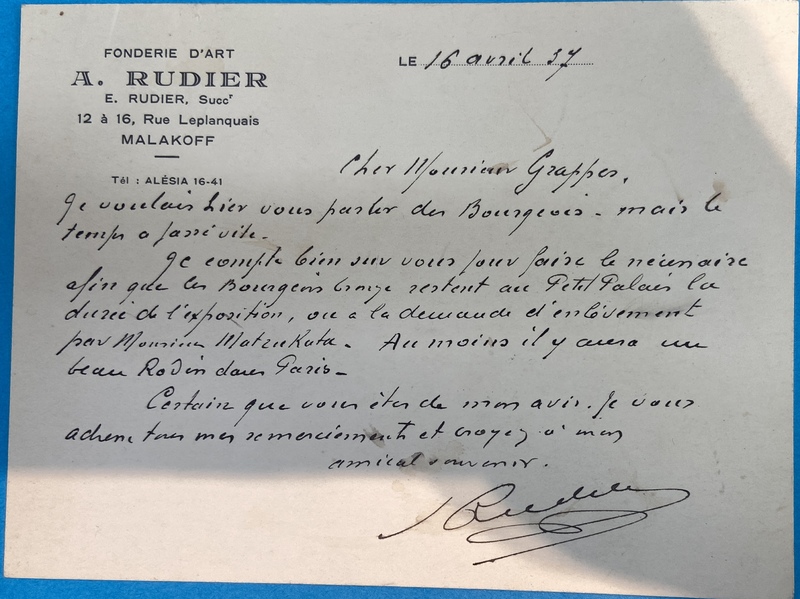 FONDERIE D'ART
A. RUDIER
E. RUDIER, Succr
12 à 16, Rue Leplanquais
MALAKOFF
Tél : ALÉSIA 16-41
LE 16 avril 37
Cher Monsieur Grappes,
Je voulais hier vous parler des Bourgeois - mais le
temps a passé vite.
Je compte bien sur vous pour faire le nécessaire
afin que les Bourgeois bronze restent au Petit Palais la
durée de l'exposition, ou a la demande d'enlèvement
par Monsieur Matzukata - Au moins il y aura un
beau Rodin dans Paris -
Certain que vous êtes de mon avis. Je vous
adresse tous mes remerciements et croyez à mon
amical souvenir.
Rudier